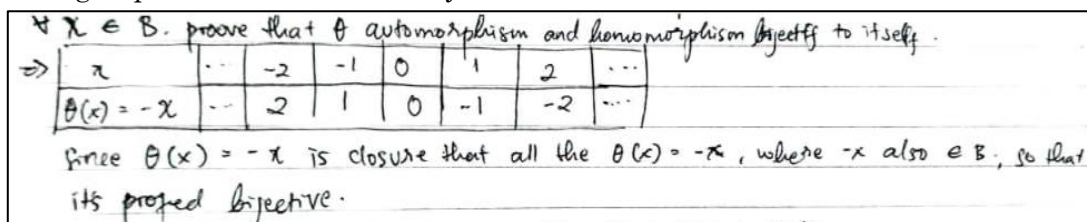 ∀ x ∈ B. proove that θ automorphism and homomorphism bijectif to itself.
⇒ x ... -2 -1 0 1 2 ...
θ(x) = -x ... 2 1 0 -1 -2 ...
Since θ(x) = -x is closure that all the θ(x) = -x, where -x also ∈ B, so that
it's proped bijective.